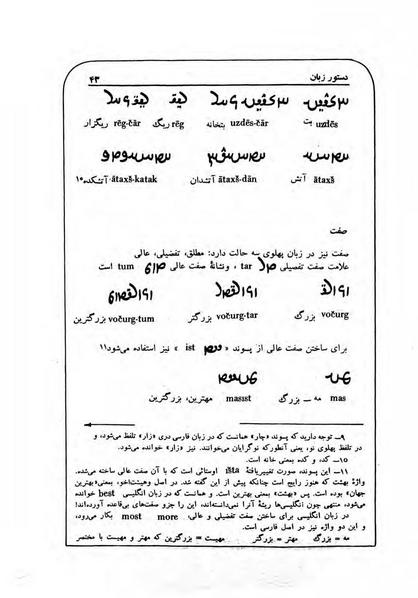 دستور زبان ۴۳
uzdēs بت uzdēs-čār بتخانه rēg ریگ rēg-čār ریگزار
ātaxš آتش ātaxš-dān آتشدان ātaxš-katak آتشکده۱۰
صفت
صفت نیز در زبان پهلوی سه حالت دارد: مطلق، تفضیلی، عالی
علامت صفت تفضیلی tar ، ونشانهٔ صفت عالی tum است
vočurg بزرگ vočurg-tar بزرگتر vočurg-tum بزرگترین
برای ساختن صفت عالی از پسوند « ist » نیز استفاده می‌شود۱۱
mas مه ــ بزرگ masist مهترین، بزرگترین
۹ــ توجه دارید که پسوند «چار» همانست که در زبان فارسی دری «زار» تلفظ می‌شود، و
در تلفظ پهلوی نو، یعنی آنطورکه نوگرایان می‌خوانند. نیز «زار» خوانده می‌شود.
۱۰ــ کد، و کده بمعنی خانه است.
۱۱ــ این پسوند، صورت تغییریافتهٔ išta اوستائی است که با آن صفت عالی ساخته می‌شده.
واژهٔ بهشت که هنوز رایج است چنانکه پیش از این گفته شد. در اصل وهیشت‌اخو، بمعنی«بهترین
جهان»بوده است. پس «بهشت» بمعنی بهترین است. و همانست که در زبان انگلیسی best خوانده
می‌شود، منتهی چون انگلیسی‌ها ریشهٔ آنرا نمی‌دانسته‌اند، این را جزو صفت‌های بی‌قاعده آورده‌اند!
در زبان انگلیسی برای ساختن صفت تفضیلی و عالی، more most بکار می‌رود،
و این دو واژه نیز در اصل فارسی است.
مه = بزرگ مهتر = بزرگتر مهیست = بزرگترین که مهتر و مهیست با مختصر